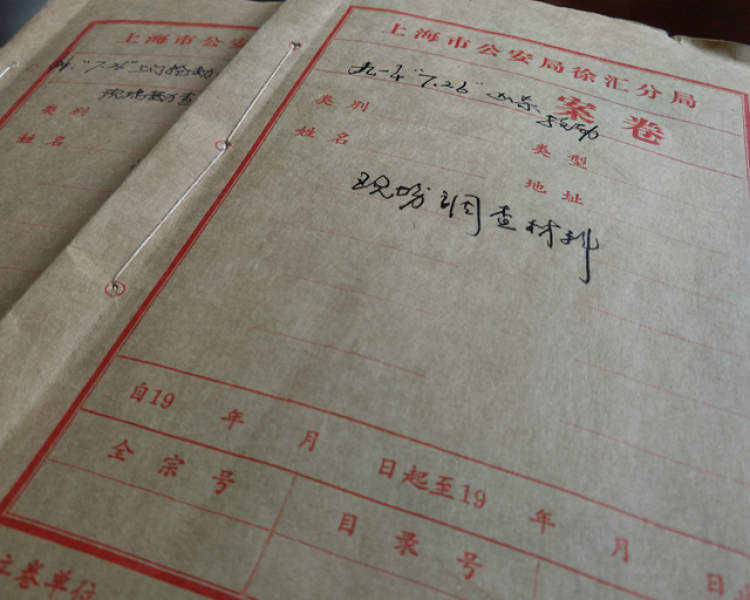 上海市公安
类别
姓名
上海市公安局徐汇分局
九一年"7.26"
案卷
类别
类型
姓名
地址
现场调查材料
自19 年 月 日起至19 年 月 日
全宗号
目录号
主卷单位